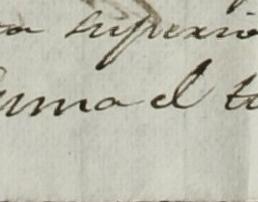 a superio
uma el t